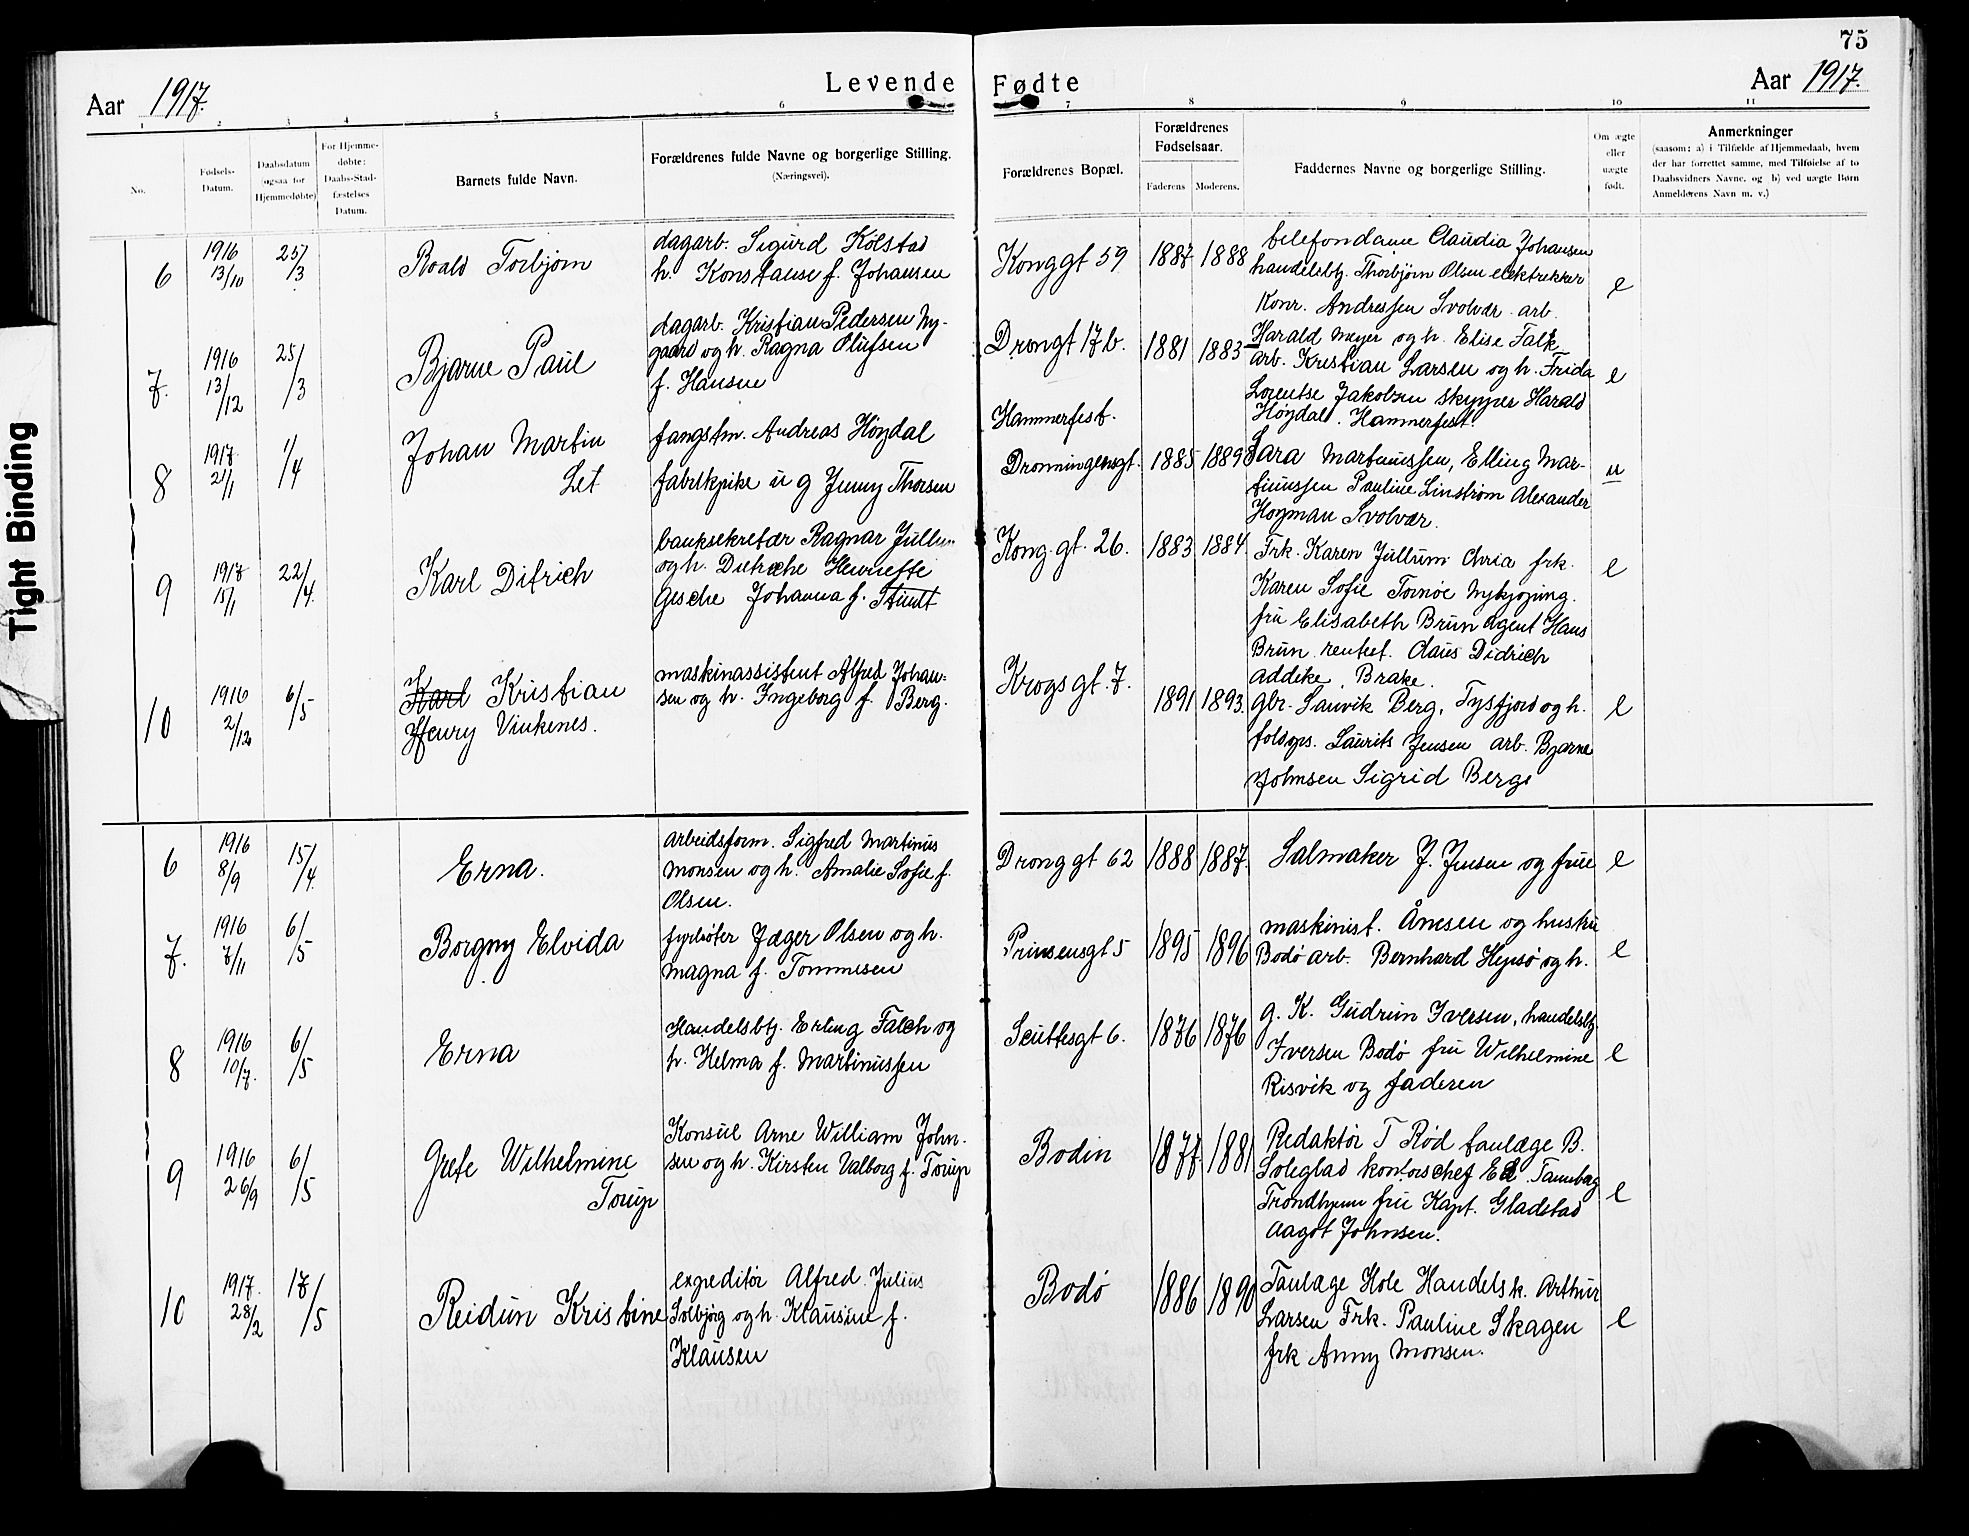 75
Levende Fødte
Aar 1917.
Aar 1917.
1 2 3 4 5 6 7 8 9 10 11
No.
Fødsels-
Datum.
Daabsdatum
(ogsaa for
Hjemmedøbte)
For Hjemme-
døbte:
Daabs-Stad-
fæstelses
Datum.
Barnets fulde Navn.
Forældrenes fulde Navne og borgerlige Stilling.
(Næringsvei).
Forældrenes Bopæl.
Forældrenes
Fødselsaar.
Faderens Moderens.
Faddernes Navne og borgerlige Stilling.
Om ægte
eller
uægte
født.
Anmerkninger
(saasom: a) i Tilfælde af Hjemmedaab, hvem
der har forrettet samme, med Tilføielse af to
Daabsvidners Navne, og b) ved uægte Børn
Anmelderens Navn m. v.)
Tight Binding
6
1916
13/10
25/3
Roald Torbjørn
dagarb. Sigurd Kolstad
h. Konstanse f. Johansen
Konggt 59
1887 1888
telefondame Claudia Johansen
handelsbtj. Thorbjørn Olsen elektrekker
Konr. Andressen Svolvær arb.
e
7.
1916
13/12
25/3
Bjarne Paul
dagarb. Kristian Pedersen Ny-
gaard og h. Ragna Olufsen
f. Hansen
Drongt 17b.
1881 1883
Harald Meyer og h. Elise Falk
arb. Kristian Larsen og h. Frida
Lorentse Jakobsen skypper Harald
Høydal. Hammerfest.
e
8
1917
21/1
1/4
Johan Martin
Let
fangstm. Andreas Høydal
fabrikpike u g Jenny Thorsen
Hammerfest.
Dronningensgt.
1885 1889
Sara Martinussen, Elling Mar-
tinussen Pauline Linstrøm Alexander
Hoyman Svolvær.
u
9
1917
15/1
22/4.
Karl Ditrich
banksekretær Ragnar Jullum
og h. Dietriche Henriette
Gesche Johanna f. Stindt
Kong. gt. 26.
1883 1884
Frk. Karen Jullum Chria frk.
Karen Sofie Tornøe Nykjøping.
fru Elisabeth Brun agent Hans
Brun rentet. Claus Didrich
Addike Brake.
e
10
1916
2/12
6/5
Karl Kristian
Henry Vinkenes.
maskinassistent Alfred Johan-
sen og h. Ingeborg f. Berg.
Krogs gt. 7.
1891 1893.
gbr. Lauvik Berg, Tysfjord og h.
Laurits Jensen arb. Bjarne
Johnsen Sigrid Berg
e
6
1916
8/9
15/4.
Erna.
arbeidsform. Sigfred Martinus
Monsen og h. Amalie Sofie f.
Olsen.
Drong gt 62
1888 1887.
Salmaker J. Jensen og frue
e
7.
1916
7/11
6/5
Borgny Elvida
fyrbøter Jæger Olsen og h.
Magna f. Tommesen
Prinsensgt 5
1895 1896
maskinist. Ånesen og hustru
Bodø arb. Bernhard Hepsø og h.
e
8
1916
10/7.
6/5
Erna
Handelsbtj. Erling Falch og
h. Helma f. Martinussen
Scuttesgt 6.
1876 1876
g. K. Gudrun Iversen, handelsbtj.
Iversen Bodø fru Wilhelmine
Risvik og faderen
e
9
1916
26/9
6/5
Grete Wilhelmine
Torup
Konsul Arne William John-
sen og h. Kirsten Valborg f. Torup
Bodin
1877. 1881
Redaktør T Rød tanlæge B.
Soleglad kontorschef Ed. Tannberg
Trondhjem fru Kapt. Gladstad
Aagot Johnsen.
e
10
1917.
28/2
17/5
Reidun Kristine
expeditør Alfred Julius
Solbjørg og h. Klausine f.
Klausen
Bodø
1886 1890
Tanlæge Hole Handels k. Arthur
Larsen Frk. Pauline Skagen
frk Anny Monsen.
e